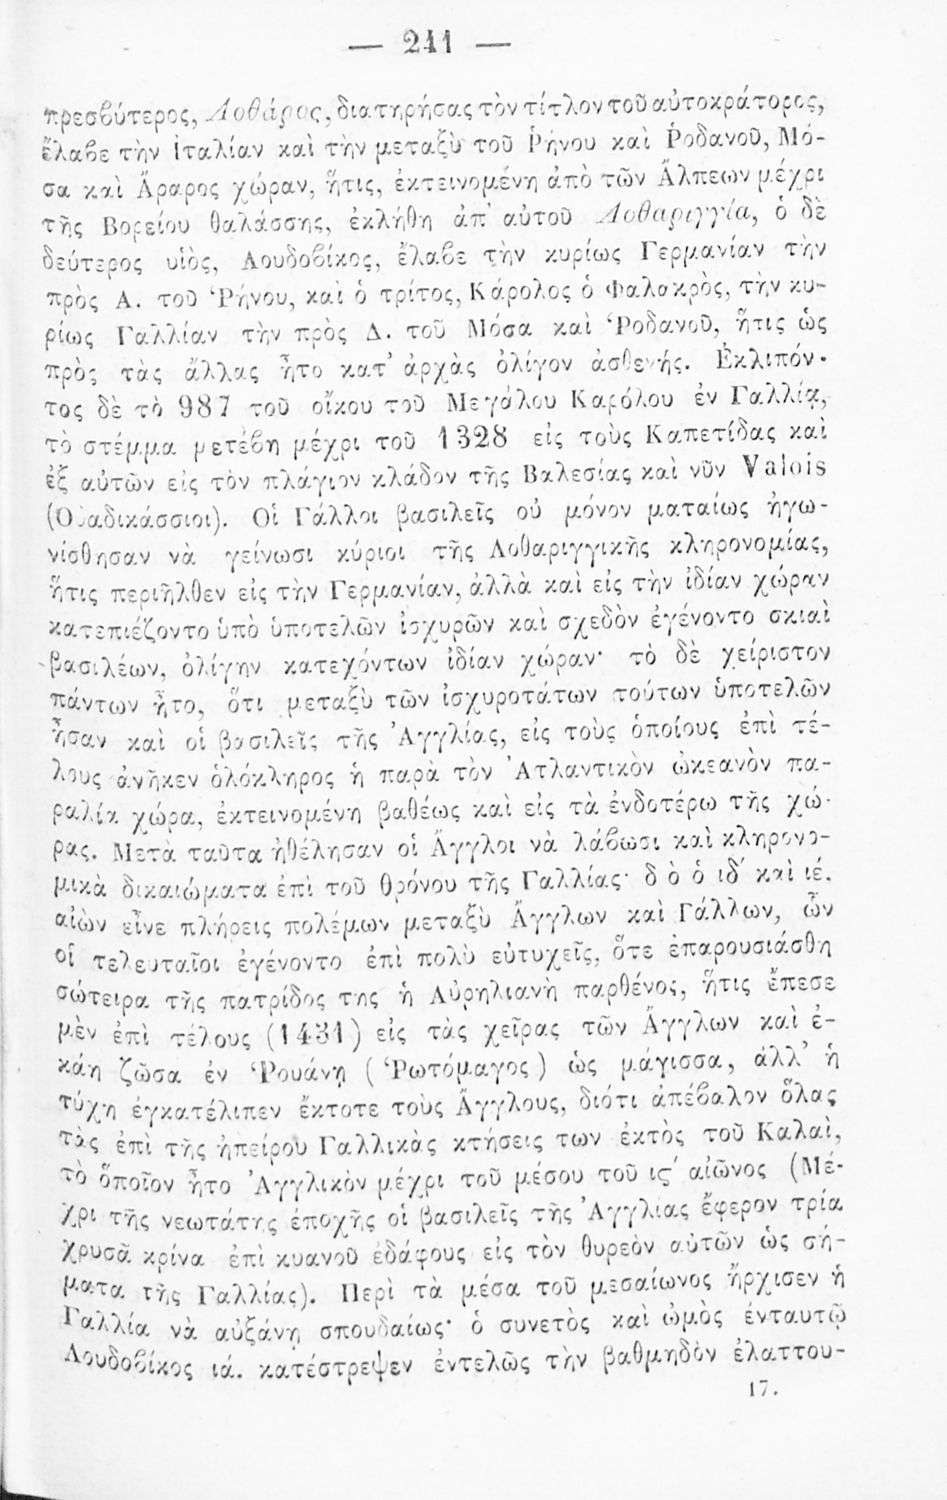 — 241 —
πρεσβύτερος, Λοθάρος, διατηρήσας τὸν τίτλον τοῦ αὐτοκράτορος,
ἔλαβε τὴν Ἰταλίαν καὶ τὴν μεταξὺ τοῦ Ῥήνου καὶ Ῥοδανοῦ, Μό-
σα καὶ Ἄραρος χώραν, ἥτις, ἐκτεινομένη ἀπὸ τῶν Ἄλπεων μέχρι
τῆς Βορείου θαλάσσης, ἐκλήθη ἀπ' αὐτοῦ Λοθαριγγία, ὁ δὲ
δεύτερος υἱὸς, Λουδοβίκος, ἔλαβε τὴν κυρίως Γερμανίαν τὴν
πρὸς Α. τοῦ Ῥήνου, καὶ ὁ τρίτος, Κάρολος ὁ Φαλακρὸς, τὴν κυ-
ρίως Γαλλίαν τὴν πρὸς Δ. τοῦ Μόσα καὶ Ῥοδανοῦ, ἥτις ὡς
πρὸς τὰς ἄλλας ἦτο κατ' ἀρχὰς ὀλίγον ἀσθενής. Ἐκλιπόν-
τος δὲ τὸ 987 τοῦ οἴκου τοῦ Μεγάλου Καρόλου ἐν Γαλλίᾳ,
τὸ στέμμα μετέβη μέχρι τοῦ 1328 εἰς τοὺς Καπετίδας καὶ
ἐξ αὐτῶν εἰς τὸν πλάγιον κλάδον τῆς Βαλεσίας καὶ νῦν Valois
(Οὐαδικάσσιοι). Οἱ Γάλλοι βασιλεῖς οὐ μόνον ματαίως ἠγω-
νίσθησαν νὰ γείνωσι κύριοι τῆς Λοθαριγγικῆς κληρονομίας,
ἥτις περιῆλθεν εἰς τὴν Γερμανίαν, ἀλλὰ καὶ εἰς τὴν ἰδίαν χώραν
κατεπιέζοντο ὑπὸ ὑποτελῶν ἰσχυρῶν καὶ σχεδὸν ἐγένοντο σκιαὶ
βασιλέων, ὀλίγην κατεχόντων ἰδίαν χώραν· τὸ δὲ χείριστον
πάντων ἦτο, ὅτι μεταξὺ τῶν ἰσχυροτάτων τούτων ὑποτελῶν
ἦσαν καὶ οἱ βασιλεῖς τῆς Ἀγγλίας, εἰς τοὺς ὁποίους ἐπὶ τέ-
λους ἀνῆκεν ὁλόκληρος ἡ παρὰ τὸν Ἀτλαντικὸν ὠκεανὸν πα-
ραλία χώρα, ἐκτεινομένη βαθέως καὶ εἰς τὰ ἐνδοτέρω τῆς χώ-
ρας. Μετὰ ταῦτα ἠθέλησαν οἱ Ἄγγλοι νὰ λάβωσι καὶ κληρονο-
μικὰ δικαιώματα ἐπὶ τοῦ θρόνου τῆς Γαλλίας· δ ὸ ὁ ιδ' καὶ ιέ.
αἰὼν εἶνε πλήρεις πολέμων μεταξὺ Ἄγγλων καὶ Γάλλων, ὧν
οἱ τελευταῖοι ἐγένοντο ἐπὶ πολὺ εὐτυχεῖς, ὅτε ἐπαρουσιάσθη
σώτειρα τῆς πατρίδος της ἡ Αὐρηλιανὴ παρθένος, ἥτις ἔπεσε
μὲν ἐπὶ τέλους (1431) εἰς τὰς χεῖρας τῶν Ἄγγλων καὶ ἐ-
κάη ζῶσα ἐν Ῥουάνῃ (Ῥωτόμαγος) ὡς μάγισσα, ἀλλ' ἡ
τύχη ἐγκατέλιπεν ἔκτοτε τοὺς Ἄγγλους, διότι ἀπέβαλον ὅλας
τὰς ἐπὶ τῆς ἠπείρου Γαλλικὰς κτήσεις των ἐκτὸς τοῦ Καλαὶ,
τὸ ὁποῖον ἦτο Ἀγγλικὸν μέχρι τοῦ μέσου τοῦ ις' αἰῶνος (Μέ-
χρι τῆς νεωτάτης ἐποχῆς οἱ βασιλεῖς τῆς Ἀγγλίας ἔφερον τρία
χρυσᾶ κρίνα ἐπὶ κυανοῦ ἐδάφους εἰς τὸν θυρεὸν αὐτῶν ὡς σή-
ματα τῆς Γαλλίας). Περὶ τὰ μέσα τοῦ μεσαίωνος ἤρχισεν ἡ
Γαλλία νὰ αὐξάνῃ σπουδαίως· ὁ συνετὸς καὶ ὠμὸς ἐνταυτῷ
Λουδοβίκος ιά. κατέστρεψεν ἐντελῶς τὴν βαθμηδὸν ἐλαττου-
17.